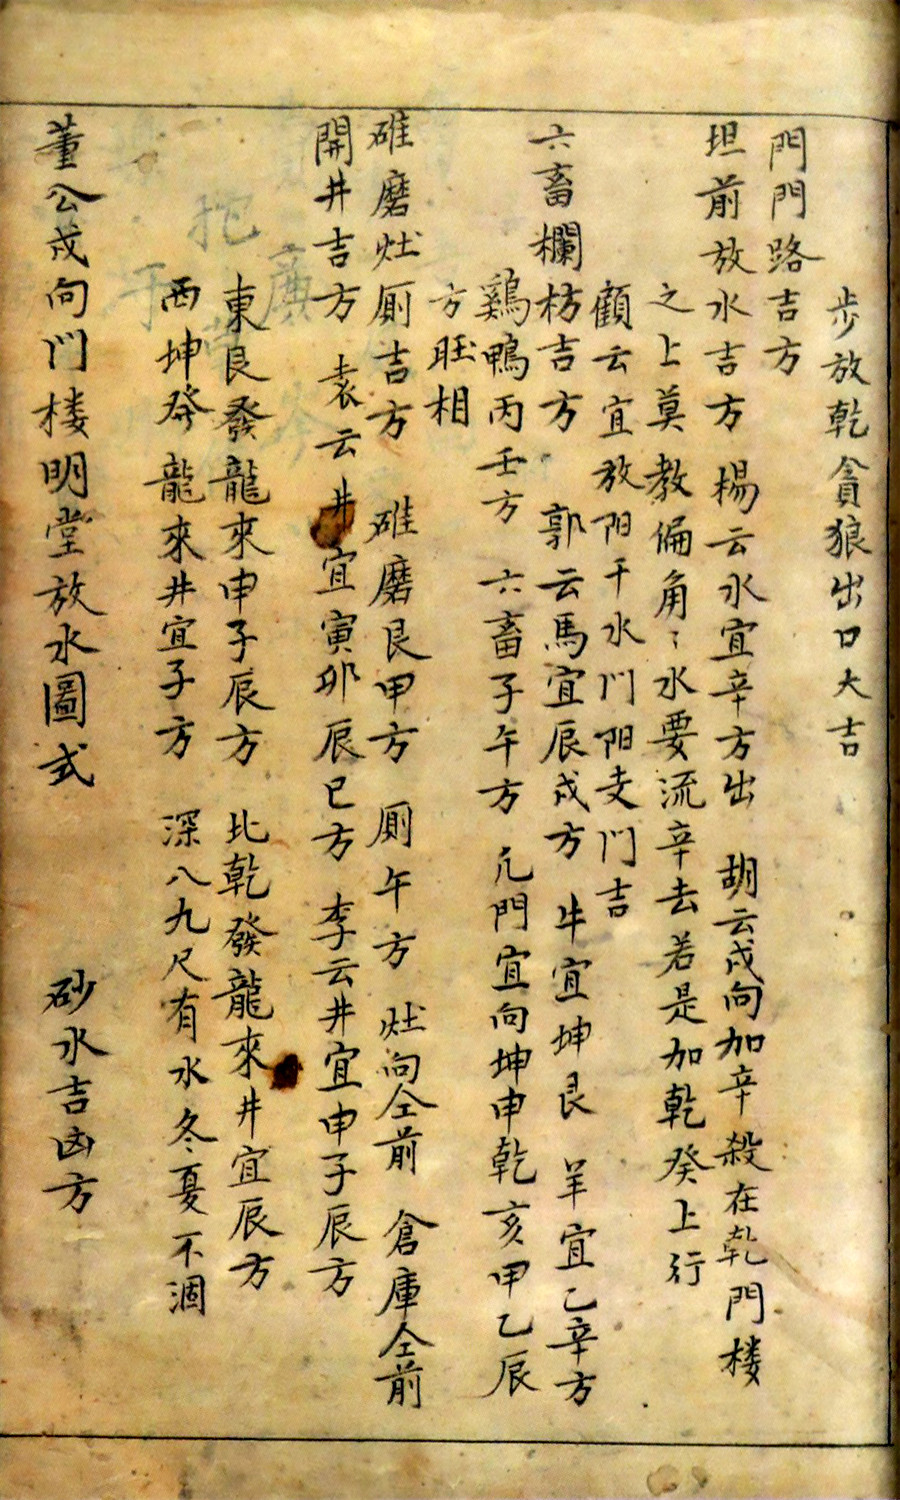 步放乾貪狼出口大吉
門門路吉方
坦前放水吉方 楊云水宜辛方出 胡云戌向加辛殺在乾門楼
之上莫教偏角〻水要流辛去若是加乾癸上行
顧云宜放阳干水门阳支门吉
六畜欄枋吉方 郭云馬宜辰戌方 牛宜坤艮 羊宜乙辛方
鷄鴨丙壬方 六畜子午方 凢門宜向坤申乾亥甲乙辰
方旺相
碓磨灶厠吉方 碓磨艮甲方 厠午方 灶向仝前 倉庫仝前
開井吉方 袁云井宜寅卯辰巳方 李云井宜申子辰方
東艮發龍來申子辰方 北乾發龍來井宜辰方
西坤發龍來井宜子方 深八九尺有水冬夏不涸
董公戌向门楼明堂放水圖式 砂水吉凶方